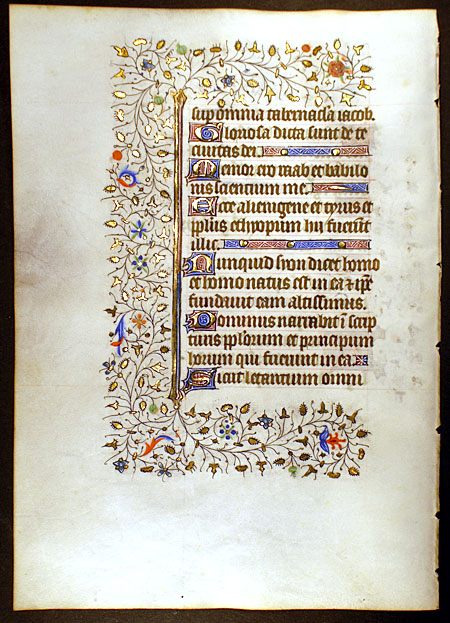 sup omnia tabernacla iacob.
Gloriosa dicta sunt de te
ciuitas dei
Memor ero raab et babilo
nis scientium me.
Ecce alienigene et tyrus et
pplus ethyopum hii fuerunt
illic.
Nunquid syon dicet homo
et homo natus est in ea et ipe
fundauit eam altissimus.
Dominus narrabit i scrip
turis pplorum et principum
horum qui fuerunt in ea.
Sicut letantium omni